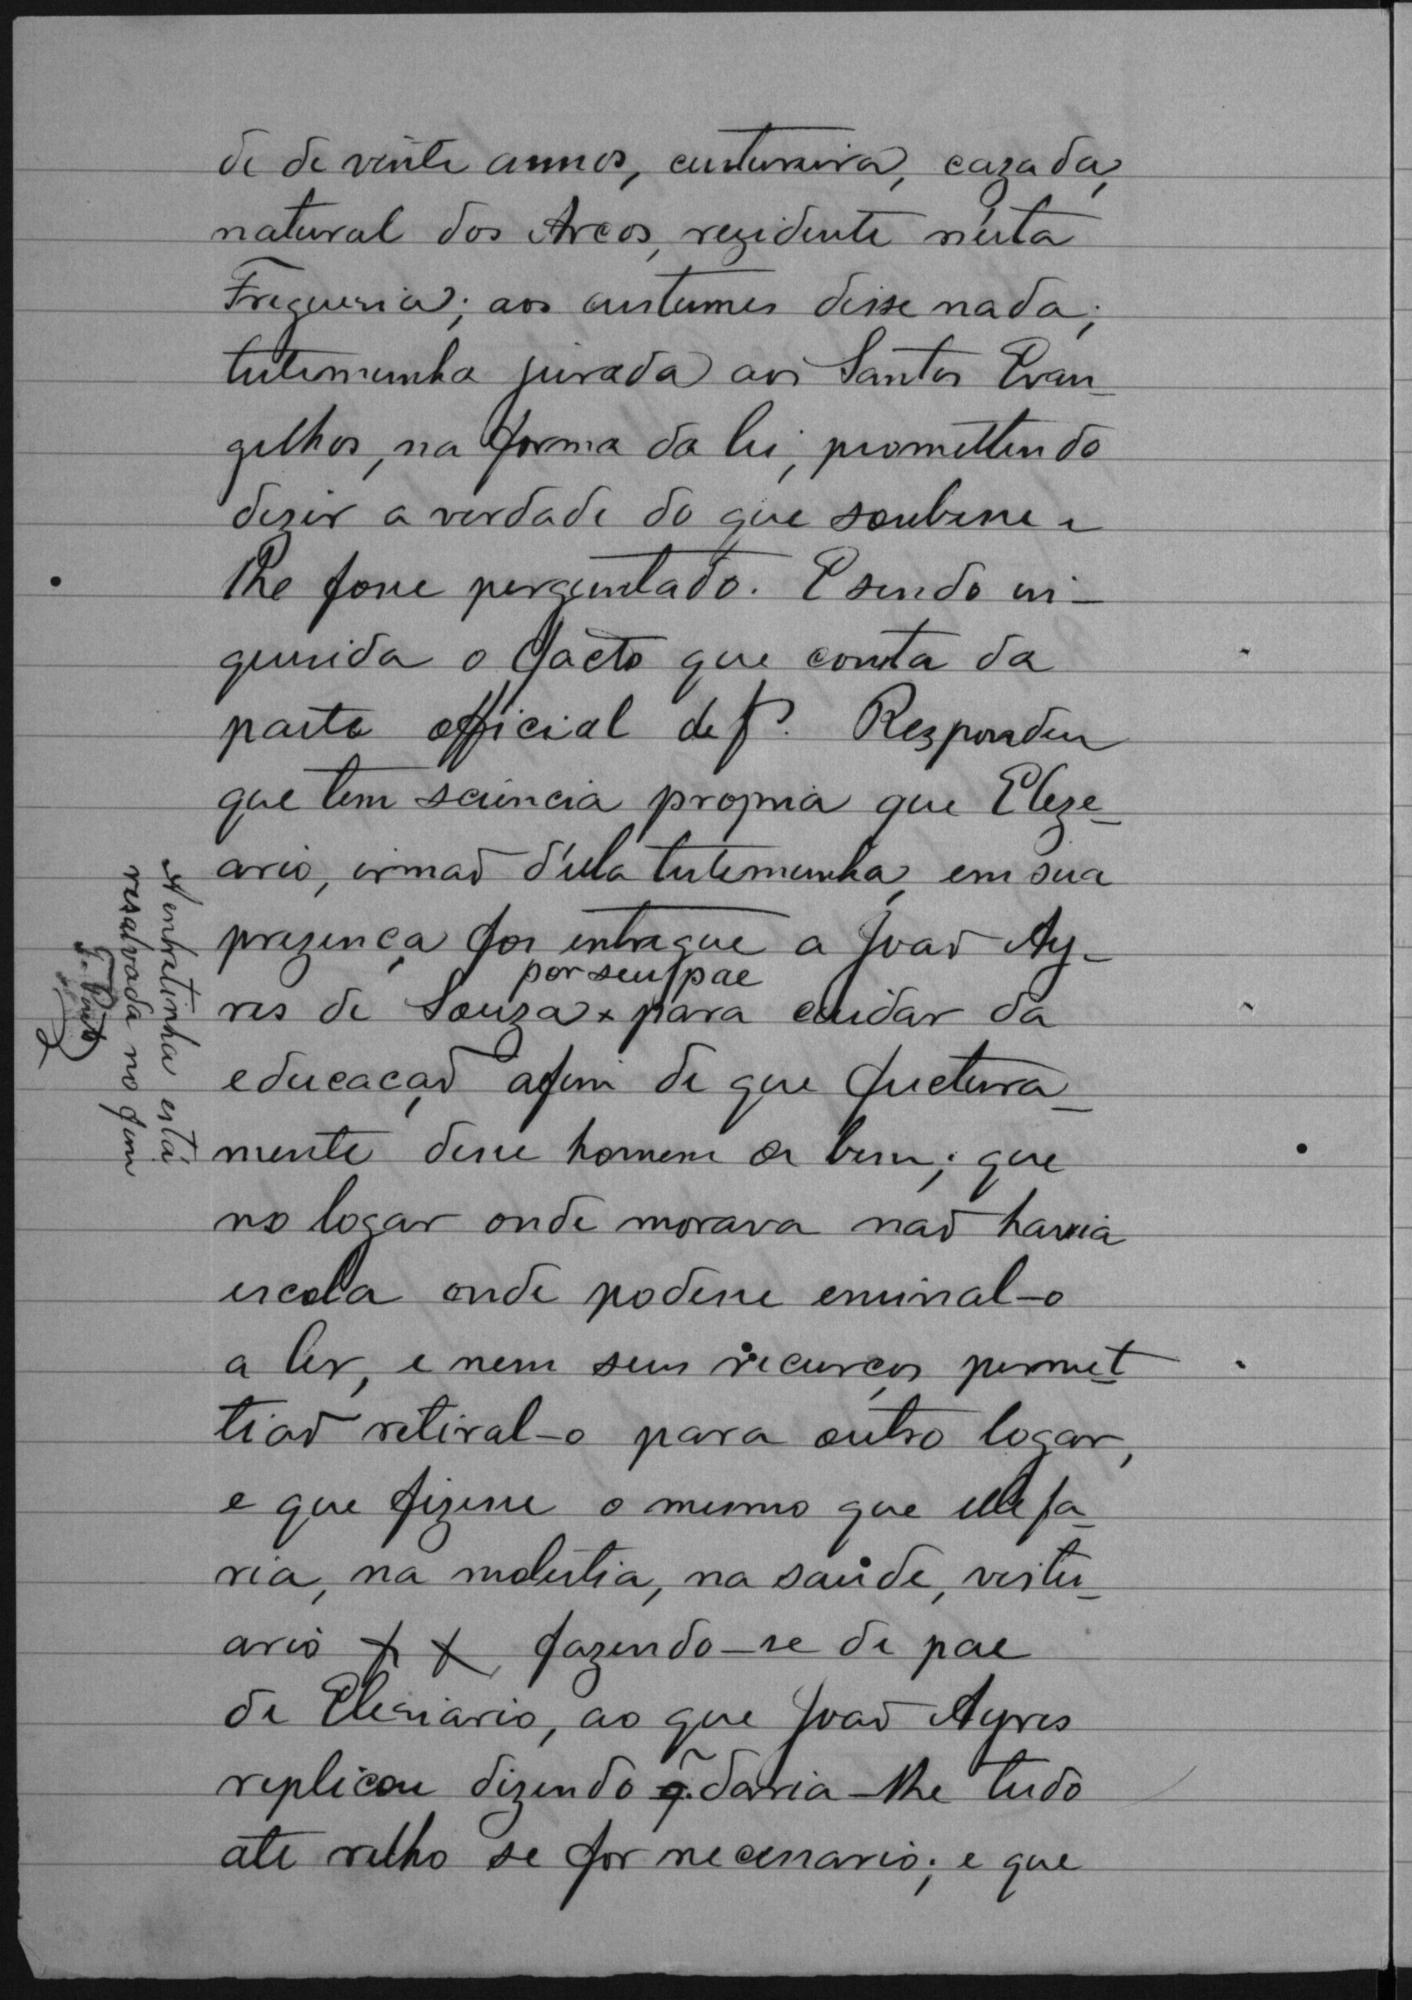 de de vinte annos, custureira, cazada,
natural dos Arcos, rezidente n'esta
Freguesia; aos custumes disse nada;
testemunha jurada aos Santos Evan-
gelhos, na forma da lei, promettendo
dezer a verdade do que soubesse e
lhe fosse perguntado. E sendo in-
querida o facto que consta da
parte official de f. Respondeu
que tem sciencia propria que Eleze-
ario, irmaõ d'ella testemunha, em sua
prezença foi entregue a Joaõ Ay-
por seu pae
res de Souza x para cuidar da
educaçaõ afim de que fuctura-
mente desse homem de bem; que
no logar onde morava naõ havia
escola onde podesse ensinal-o
a ler, e nem seus recurços permet
tiaõ retiral-o para outro logar,
e que fizesse o mesmo que elle fa-
ria, na molestia, na saúde, vestu-
ario x x, fazendo-se de pae
de Elesiario, ao que Joaõ Ayres
replicou dizendo q̃ daria-lhe tudo
até relho se for necessario; e que
A entrelinha está
resalvada no fim